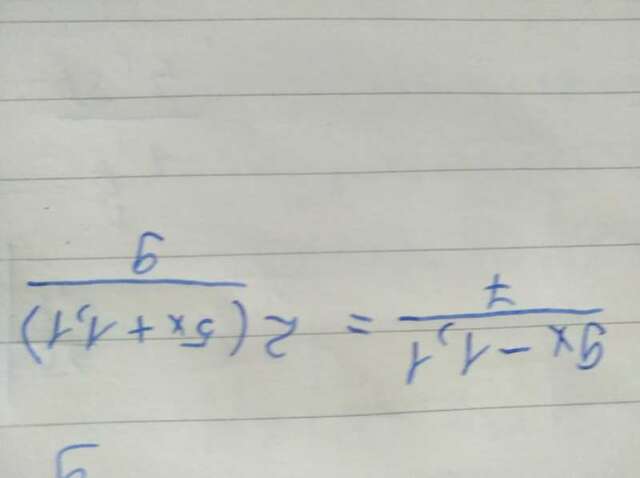 9x - 1,1 / 7 = 2 (5x + 1,1) / 9